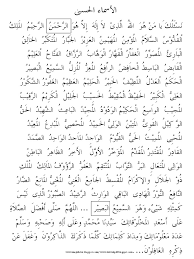 الأسماء الحسنى
نسئلك يا من هو الله الذي لا إله إلا هو الرحمن الرحيم الملك
القدوس السلام المؤمن المهيمن العزيز الجبار المتكبر الخالق
البارئ المصور الغفار القهار الوهاب الرزاق الفتاح العليم
القابض الباسط الخافض الرافع المعز المذل السميع البصير
الحكم العدل اللطيف الخبير الحليم العظيم الغفور الشكور
العلي الكبير الحفيظ المقيت الحسيب الجليل الكريم الرقيب
المجيب الواسع الحكيم الودود المجيد الباعث الشهيد الحق
الوكيل القوي المتين الولي الحميد المحصي المبدئ المعيد
المحيي المميت الحي القيوم الواجد الماجد الواحد
الصمد القادر المقتدر المقدم المؤخر الأول الآخر الظاهر الباطن
الوالي المتعالي البر التواب المنتقم العفو الرؤوف مالك الملك
ذو الجلال والإكرام المقسط الجامع الغني المغني المانع الضار
النافع النور الهادي البديع الباقي الوارث الرشيد الصبور الذي ليس
كمثله شيء وهو السميع البصير اللهم صل أفضل الصلاة
على أسعد مخلوقاتك سيدنا محمد وعلى آله وصحبه وسلم
عدد معلوماتك ومداد كلماتك كلما ذكرك الذاكرون وغفل عن
ذكره الغافلون